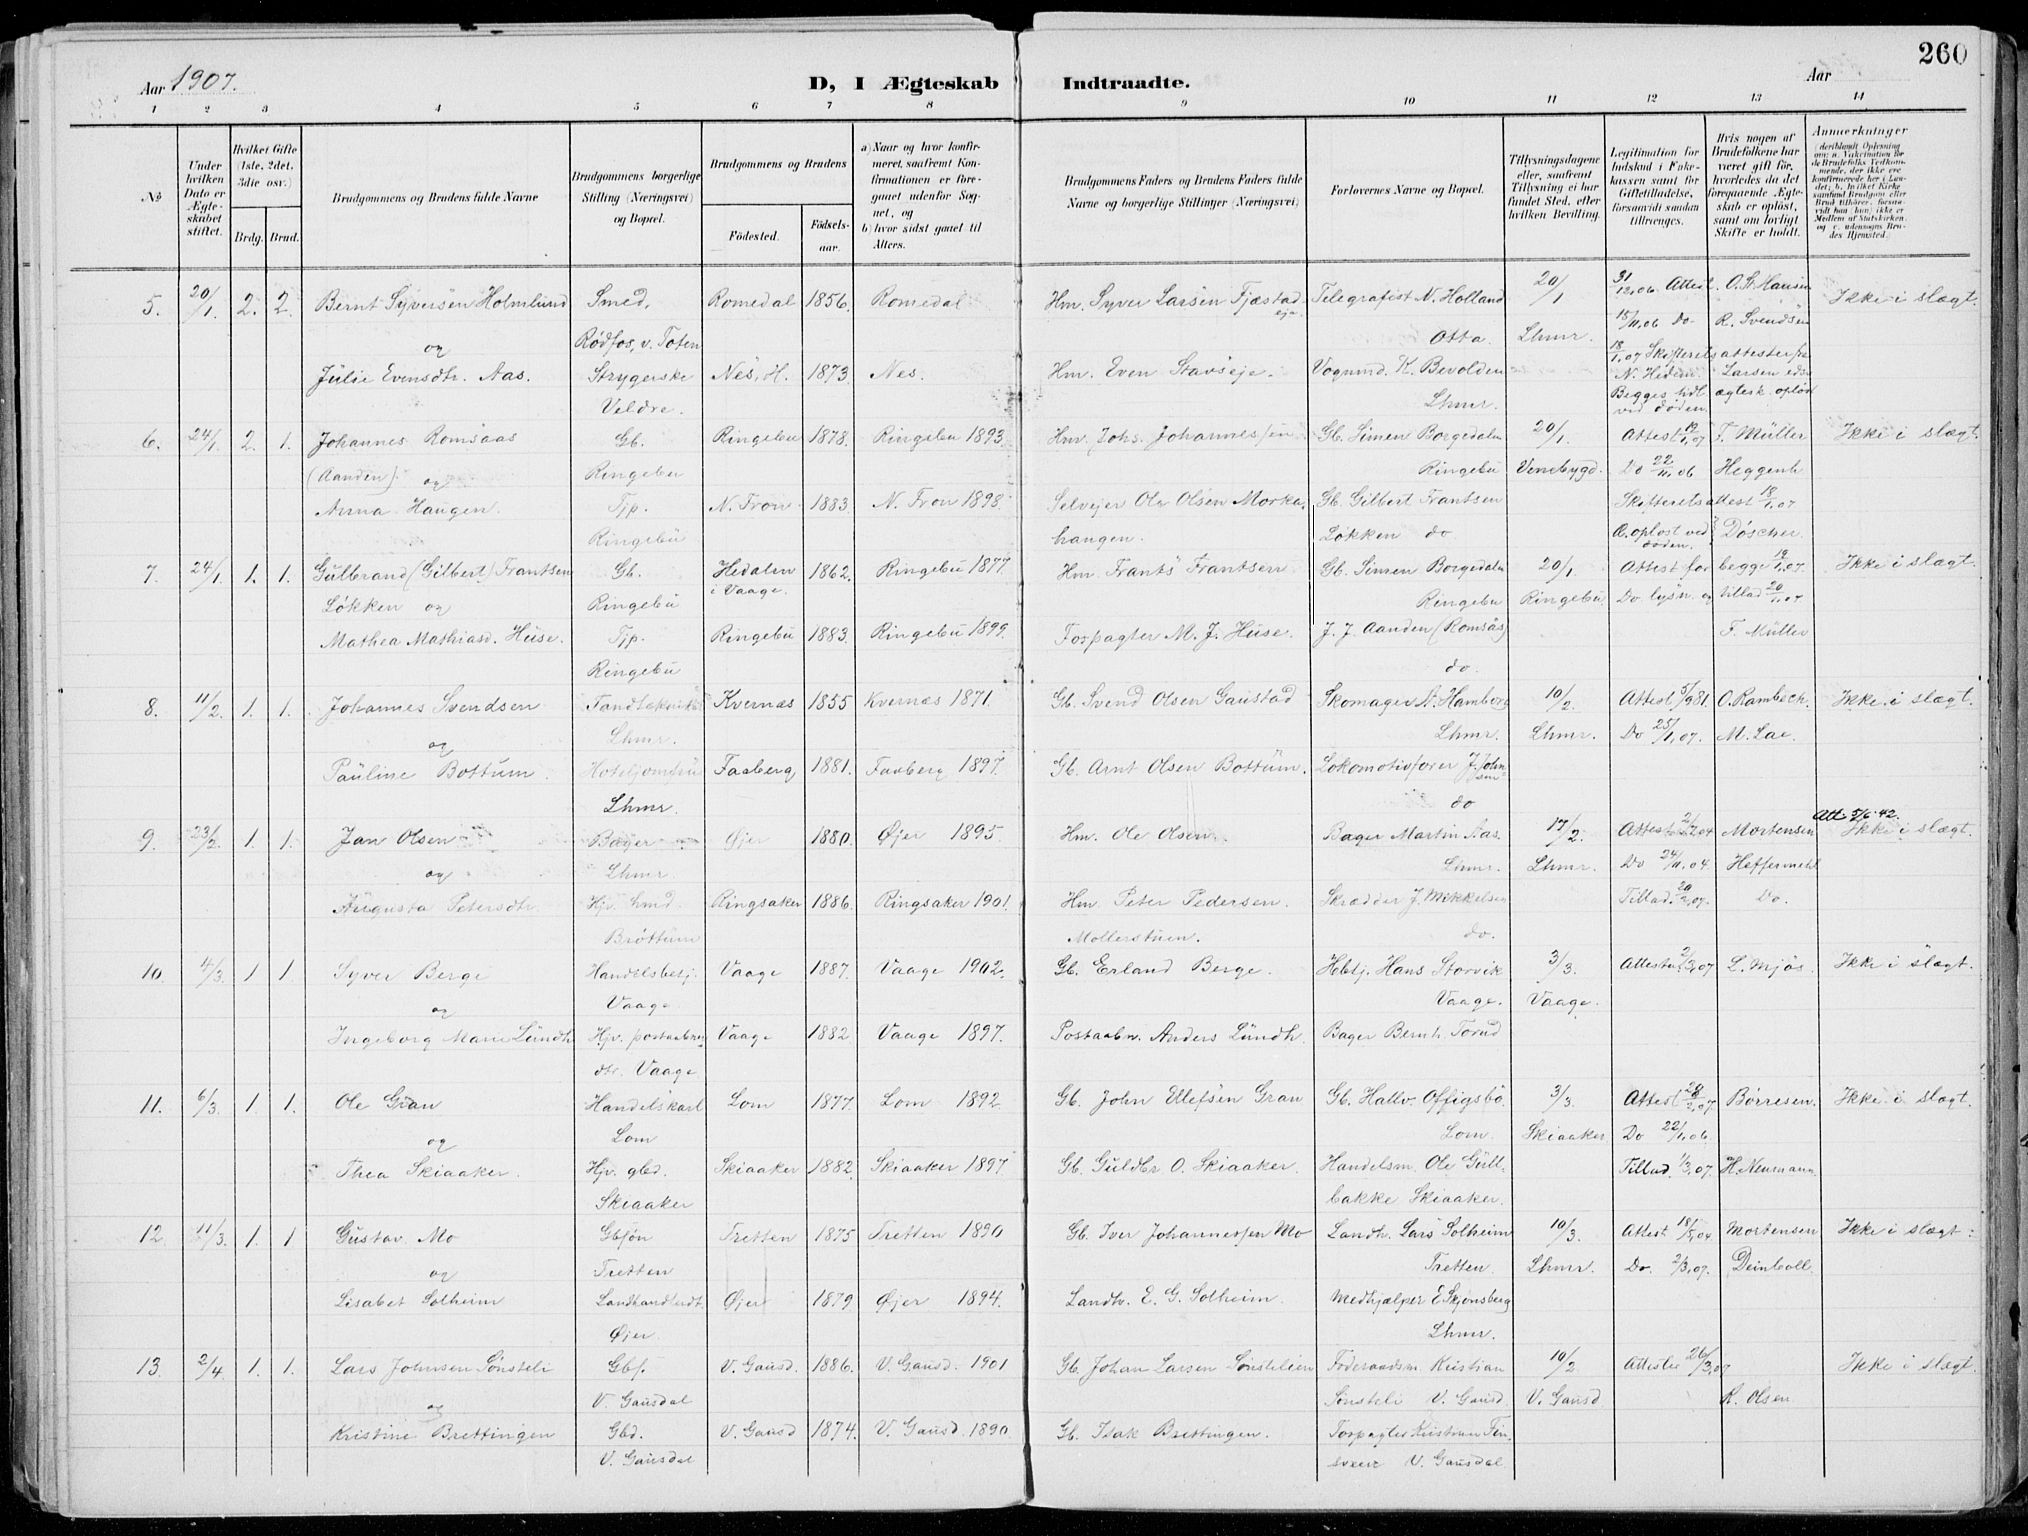 260
Aar 1907.
D, I Ægteskab Indtraadte.
Aar
1 2 3 4 5 6 7 8 9 10 11 12 13 14
№
Under hvilken Dato er Ægteskabet stiftet.
Hvilket Gifte (1ste, 2det, 3die osv.)
Brdg. Brud.
Brudgommens og Brudens fulde Navne
Brudgommens borgerlige Stilling (Næringsvei) og Bopæl.
Brudgommens og Brudens
Fødested. Fødselsaar.
a) Naar og hvor konfirmeret, saafremt Konfirmationen er foregaaet udenfor Sognet, og
b) hvor sidst gaaet til Alters.
Brudgommens Faders og Brudens Faders fulde Navne og borgerlige Stillinger (Næringsvei)
Forlovernes Navne og Bopæl.
Tillysningsdagene eller, saafremt Tillysning ei har fundet Sted, efter hvilken Bevilling.
Legitimation for Indskud i Enkekassen samt for Giftetilladelse, forsaavidt saadan tiltrænges.
Hvis nogen af Brudefolkene har været gift før, hvorledes da det foregaaende Ægteskab er opløst, samt om lovligt Skifte er holdt.
Anmærkninger (deriblandt Oplysning om: a. Vakcination for de Brudefolks Vedkommende, der ikke ere konfirmerede her i Landet; b. hvilket Kirkesamfund Brudgom eller Brud tilhører, forsaavidt han (hun) ikke er Medlem af Statskirken, og c. udensogns Brudes Hjemsted.
5. 20/1. 2. 2. Bernt Syversen Holmlund Smed, Romedal 1856. Romedal Hm. Syver Larsen Fjæstad eje Telegrafist N. Holland 20/1 31/12.06 Attest O. St. Hansen Ikke i slægt.
og Rødfos, v. Toten Otta. Lhmr. 15/11.06 Do R. Svendsen
18/1.07 Skifteretsattester fra
Julie Evensdtr. Aas. Strygerske Nes, H. 1873. Nes. Hm. Even Stavseje. Vognmd. K. Bevolden N. Hedem. Larsen
Veldre. Lhmr. Begges tidl. ægtesk. opløst ved døden
6. 24/1. 2. 1. Johannes Romsaas Gb. Ringebu 1878. Ringebu 1893. Hm. Johs. Johannessen Gb. Simen Borgedalen 20/1. Attest 19/1.07 F. Müller Ikke i slægt.
(Aanden). og Ringebu Ringebu Venebygd. Do 22/11.06 Heggenh
Anna Haugen. Tjp. N. Fron 1883 N. Fron 1898. Selvejer Ole Olsen Morka- Gb. Gilbert Frantsen Skifteretsattest 18/1.07
Ringebu haugen. Løkken do Æ. opløst ved døden. Døscher.
7. 24/1. 1. 1. Gulbrand (Gilbert) Frantsen Gb. Hedalen i Vaage. 1862. Ringebu 1877. Hm. Frants Frantsen Gb. Simen Borgedalen 20/1. Attest for begge 19/1.07. Ikke i slægt.
Løkken og Ringebu Ringebu Ringebu Do lysn. og tillad 20/1.07
Mathea Mathiasd. Huse. Tjp. Ringebu 1883. Ringebu 1899. Forpagter M. J. Huse. J. J. Aanden (Romsås) F. Müller
Ringebu do.
8. 11/2. 1. 1. Johannes Svendsen Tandtekniker Kvernæs 1855 Kvernæs 1871. Gb. Svend Olsen Gaustad Skomager A. Hamborg 10/2. Attest 5/9 81. O. Rambech. Ikke i slægt.
og Lhmr. Lhmr. Lhmr. Do 25/1.07. M. Lae.
Pauline Bottum. Hoteljomfru Faaberg 1881. Faaberg 1897. Gb. Arnt Olsen Bottum. Lokomotivfører J. Johnsen
Lhmr. do
Att. 5/6 42.
9. 23/2. 1. 1. Jan Olsen Bager Øjer 1880. Øjer 1895. Hm. Ole Olsen. Bager Martin Aas. 17/2. Attest Mortensen Ikke i slægt.
og Lhmr. Lhmr. Lhmr. Do 24/11.04. Heffermehl
Augusta Petersdtr. Hjv. hmd Ringsaker 1886. Ringsaker 1901. Hm. Peter Pedersen Skrædder J. Mikkelsen Tillad. 20/2.07. Do.
Brøttum Mollerstuen. do.
10. 4/3. 1 1. Syver Berge Handelsbetj. Vaage 1887. Vaage 1902. Gb. Erland Berge. Hbtj. Hans Storvik 3/3. Attester 2/3.07 L. Mjøs. Ikke i slægt.
og Vaage Vaage. Vaage.
Ingeborg Marie Lundh Hjv. postaabner- Vaage 1882 Vaage 1897. Postaabn. Anders Lundh. Bager Bernh. Torud
dtr. Vaage
11. 6/3. 1. 1. Ole Gran Handelskarl Lom 1877. Lom 1892. Gb. John Ellefsen Gran Gb. Hallv. Offigsbø. 3/3. Attest 28/2.07. Børresen. Ikke i slægt.
og Lom Lom. Skiaaker Do 22/11.06.
Thea Skiaaker. Hjv. gbd. Skiaaker 1882. Skiaaker 1897. Gb. Guldbr. O. Skiaaker. Handelsm. Ole Gull- Tillad 1/3.07. H. Neumann.
Skiaaker bakke Skiaaker.
12. 11/3. 1. 1 Gustav Mo Gbsøn Tretten 1875 Tretten 1890 Gb. Iver Johannessen Mo Landh. Lars Solheim 10/3. Attest 18/5.04 Mortensen Ikke i slægt.
og Tretten Tretten. Lhmr. Do. 2/3.07. Deinboll.
Lisabet Solheim Landhandlerdt. Øjer 1879 Øjer 1894. Landh. E. G. Solheim. Medhjælper E. Skjønsberg
Øjer. Lhmr.
13. 2/4. 1. 1. Lars Johnsen Sønsteli Gbs. V. Gausd. 1886. V. Gausd. 1901 Gb. Johan Larsen Sønstelien Føderaadsm. Kristian 10/2. Attester 26/3.07 Ikke i slægt.
og V. Gausdal Sønsteli V. Gausd. V. Gausd R. Olsen
Kristine Brettingen Gbd. V. Gausd 1874. V. Gausd. 1890. Gb. Isak Brettingen. Forpagter Kristian
V. Gausdal V. Gausdal